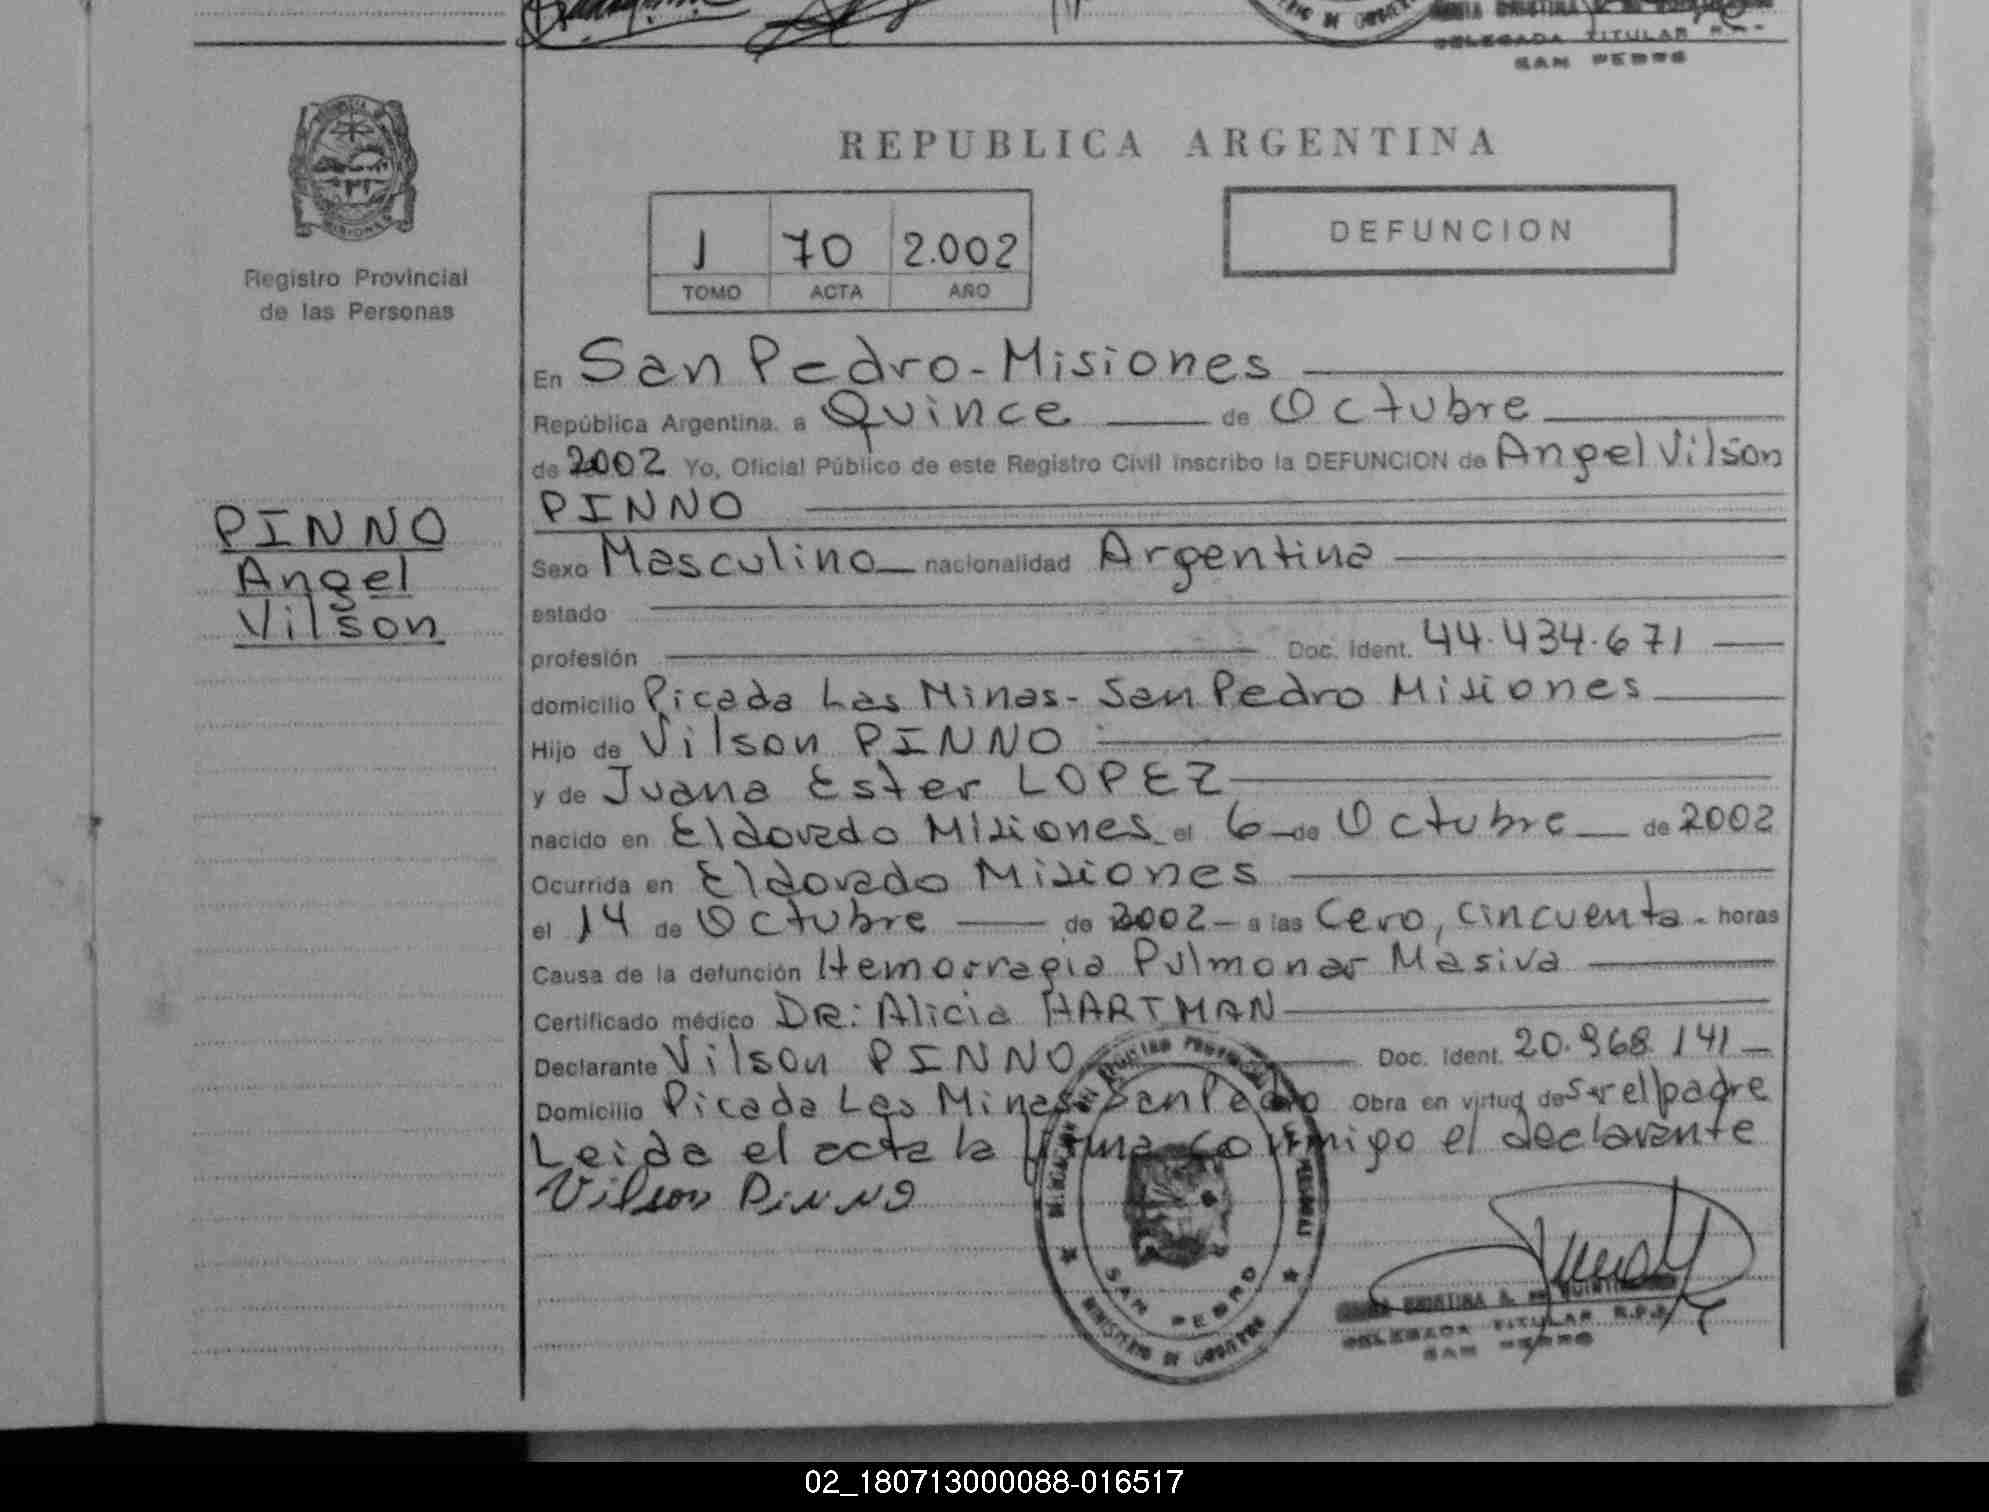 DELEGADA TITULAR R.P.
SAN PEDRO
Registro Provincial
de las Personas
REPUBLICA ARGENTINA
1 70 2.002
TOMO ACTA AÑO
DEFUNCION
En San Pedro - Misiones
República Argentina, a Quince de Octubre
de 2002 Yo, Oficial Público de este Registro Civil inscribo la DEFUNCION de Angel Vilson
PINNO
PINNO
Angel
Vilson
Sexo Masculino nacionalidad Argentina
estado
profesión Doc. Ident. 44.434.671
domicilio Picada Las Minas - San Pedro Misiones
Hijo de Vilson PINNO
y de Juana Ester LOPEZ
nacido en Eldorado Misiones el 6 de Octubre de 2002
Ocurrida en Eldorado Misiones
el 14 de Octubre de 2002 a las Cero, cincuenta horas
Causa de la defunción Hemorragia Pulmonar Masiva
Certificado médico DR: Alicia HARTMAN
Declarante Vilson PINNO Doc. Ident. 20.968.141
Domicilio Picada Las Minas San Pedro Obra en virtud de ser el padre
Leida el acta la firma conmigo el declarante
Vilson PiNNO
SAN PEDRO
MINISTERIO DE GOBIERNO
DELEGADA TITULAR R.P.P.
SAN PEDRO
02_180713000088-016517